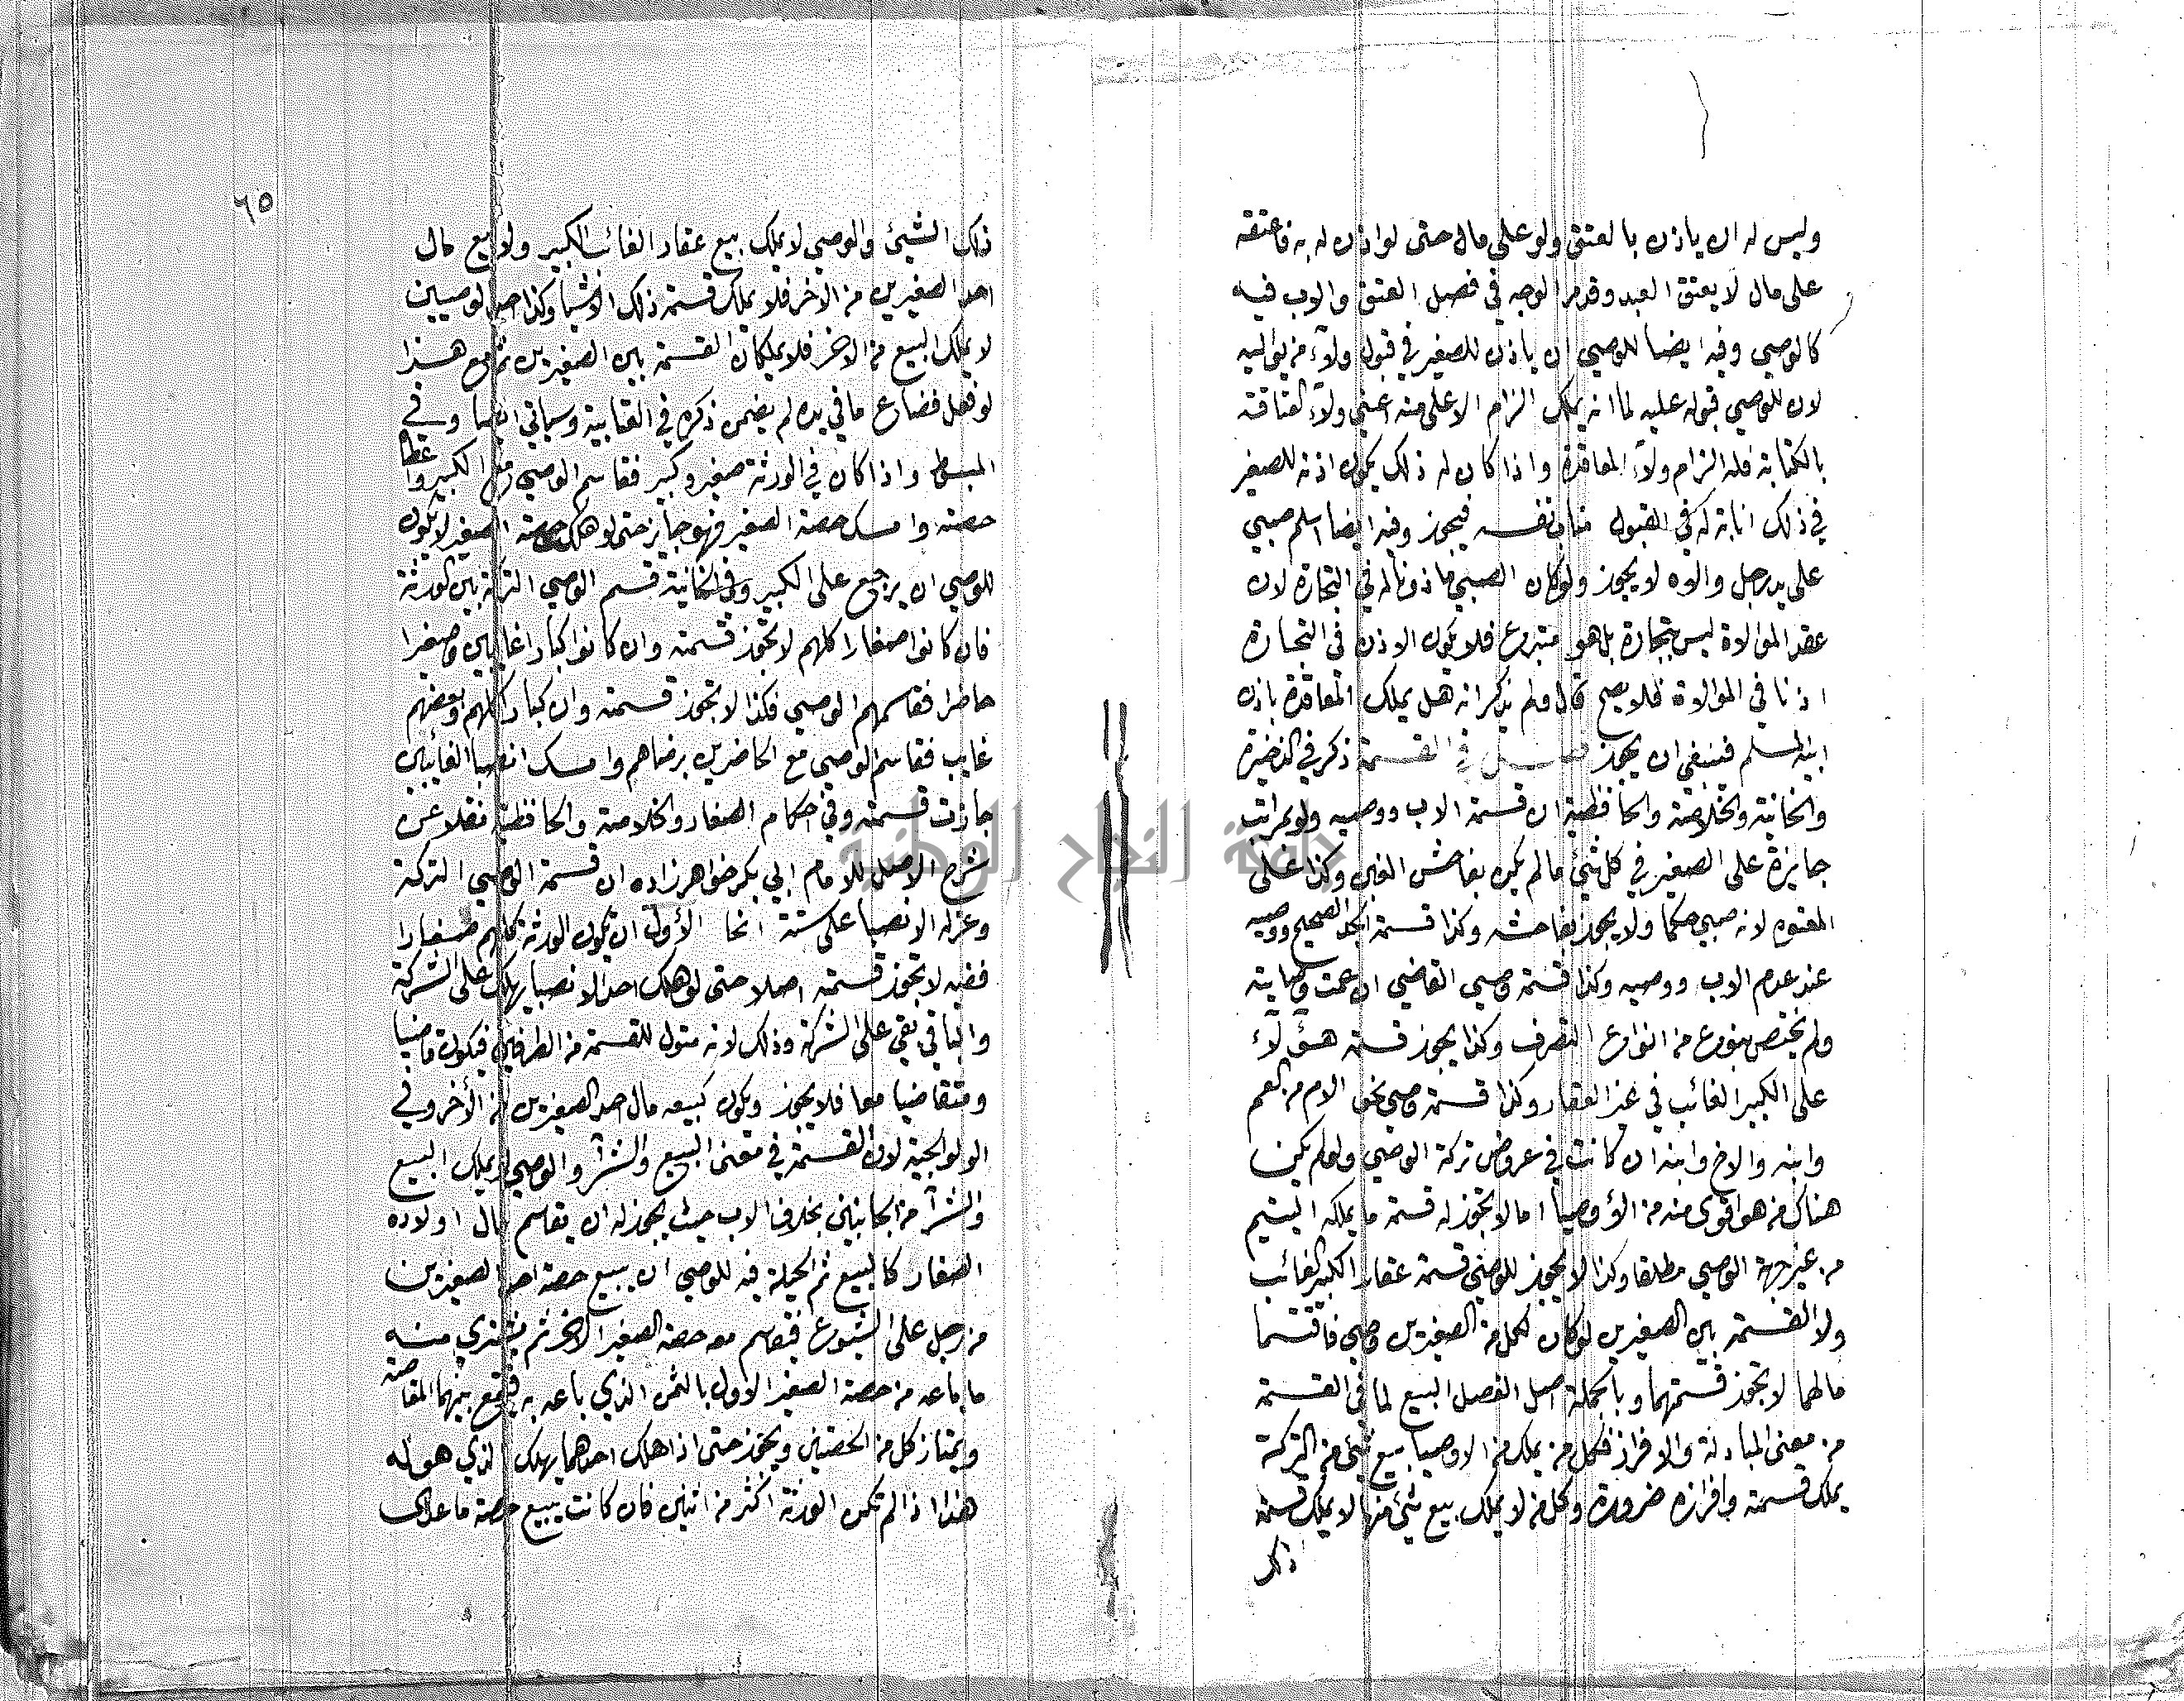 وليس له ان ياذن بالعتق ولو على مال حتى لو اذن له به فاعتقه
على مال لا يعتق العبد وقد مر الوجه في فصل العتق والاب فيه
كالوصي وفيه ايضا للوصي ان ياذن للصغير في قبول ولآء من يواليه
لان للوصي قبوله عليه لما انه يملك الزام الاعلى منه اعني ولآء العتاقة
بالكتابة فله الزام ولآء المعاقدة واذا كان له ذلك يكون اذنه للصغير
في ذلك انابة له في القبول مناب نفسه فيجوز وفيه ايضا اسلم صبي
على يد رجل ووالاه لا يجوز ولو كان الصبي ماذونا له في التجارة لان
عقد الموالاة ليس بتجارة بل هو متبرع فلا يكون الاذن في التجارة
اذنا في الموالاة فلا يصح قال ولم يذكر انه هل يملك المعاقدة باذن
ابيه المسلم فينبغي ان يجوز فصل في القسمة ذكر في الذخيرة
والخانية والخلاصة والحافظية ان قسمة الاب ووصيه ولو بمراتب
جايزة على الصغير في كل شئ مالم يكن بفاحش الغبن وكذا على
المعتوه لانه صبي حكما ولا يجوز بفاحشه وكذا قسمة الجد الصحيح ووصيه
عند عدم الاب ووصيه وكذا قسمة وصي القاضي ان عمت وصايته
ولم يختص بنوع من انواع التصرف وكذا يجوز قسمة هؤلآء
على الكبير الغائب في غير العقار وكذا قسمة وصي نحو الام من العم
وابنه والاخ وابنه ان كانت في عروض تركة الوصي ولو لم يكن
هناك من هو اقوى منه من الأوصيا اما لا يجوز له قسمة ما يملكه اليتيم
من غير جهة الوصي مطلقا وكذا لا يجوز للوصي قسمة عقار الكبير الغائب
ولا القسمة بين الصغيرين لو كان لكل من الصغيرين وصي فاقتسما
مالهما لا تجوز قسمتهما وبالجملة اصل الفصل البيع لما في القسمة
من معنى المبادلة والافراز فكل من يملك من الاوصيا بيع شئ من التركة
يملك قسمته وافرازه ضرورة وكل من لا يملك بيع شئ منها لا يملك قسمة
ذلك
٦٥
ذلك الشيئ والوصي لا يملك بيع عقار الغائب الكبير ولا بيع مال
احد الصغيرين من الاخر فلا يملك قسمة ذلك الاشيا وكذا احد الوصيين
لا يملك البيع من الاخر فلا يملكان القسمة بين الصغيرين ثم مع هذا
لو فعل فضاع ما في يده لم يضمن ذكره في العتابية وسياتي ايضا وفي
المبسوط واذا كان في الورثة صغير وكبير فقاسم الوصي مع الكبير واعطا
حصته وامسك حصة الصغير فهو جايز حتى لو هلك حصة الصغير لا يكون
للوصي ان يرجع على الكبير وفي الخانية قسم الوصي التركة بين الورثة
فان كانوا صغارا كلهم لا تجوز قسمته وان كانوا كبارا غايبين وصغيرا
حاضرا فقاسمهم الوصي فكذا لا تجوز قسمته وان كبارا كلهم وبعضهم
غايب فقاسم الوصي مع الحاضرين برضاهم وامسك انصبا الغائبين
جازت قسمته وفي احكام الصغار والخلاصة والحافظية نقلا عن
شرح الاصل للامام ابي بكر خواهر زاده ان قسمة الوصي التركة
وعزله الانصبا على ستة انحا الأول ان تكون الورثة كلهم صغارا
ففيه لا تجوز قسمته اصلا حتى لو هلك احد الانصبا يهلك على الشركة
والباقي يبقى على الشركة وذلك لانه متول للقسمة من الطرفين فيكون قاضيا
ومتقاضيا معا فلا يجوز ويكون كبيعه مال احد الصغيرين من الأخر وفي
الولوالجية لان القسمة في معنى البيع والشرآ والوصي لا يملك البيع
والشرآ من الجانبين بخلاف الاب حيث يجوز له ان يقاسم مال اولاده
الصغار كالبيع ثم الحيلة فيه للوصي ان يبيع حصة احد الصغيرين
من رجل على الشيوع فيقاسم معه حصة الصغير الاخر ثم يشتري منه
ما باعه من حصة الصغير الاول بالثمن الذي باعه به فيقع بينهما المقاصة
ويمتاز كل من الحصتين ويجوز حتى اذا هلك احدهما يهلك الذي هو له
هذا اذا لم تكن الورثة اكثر من اثنين فان كانت يبيع حصة ما عدا
جامعة النجاح الوطنية